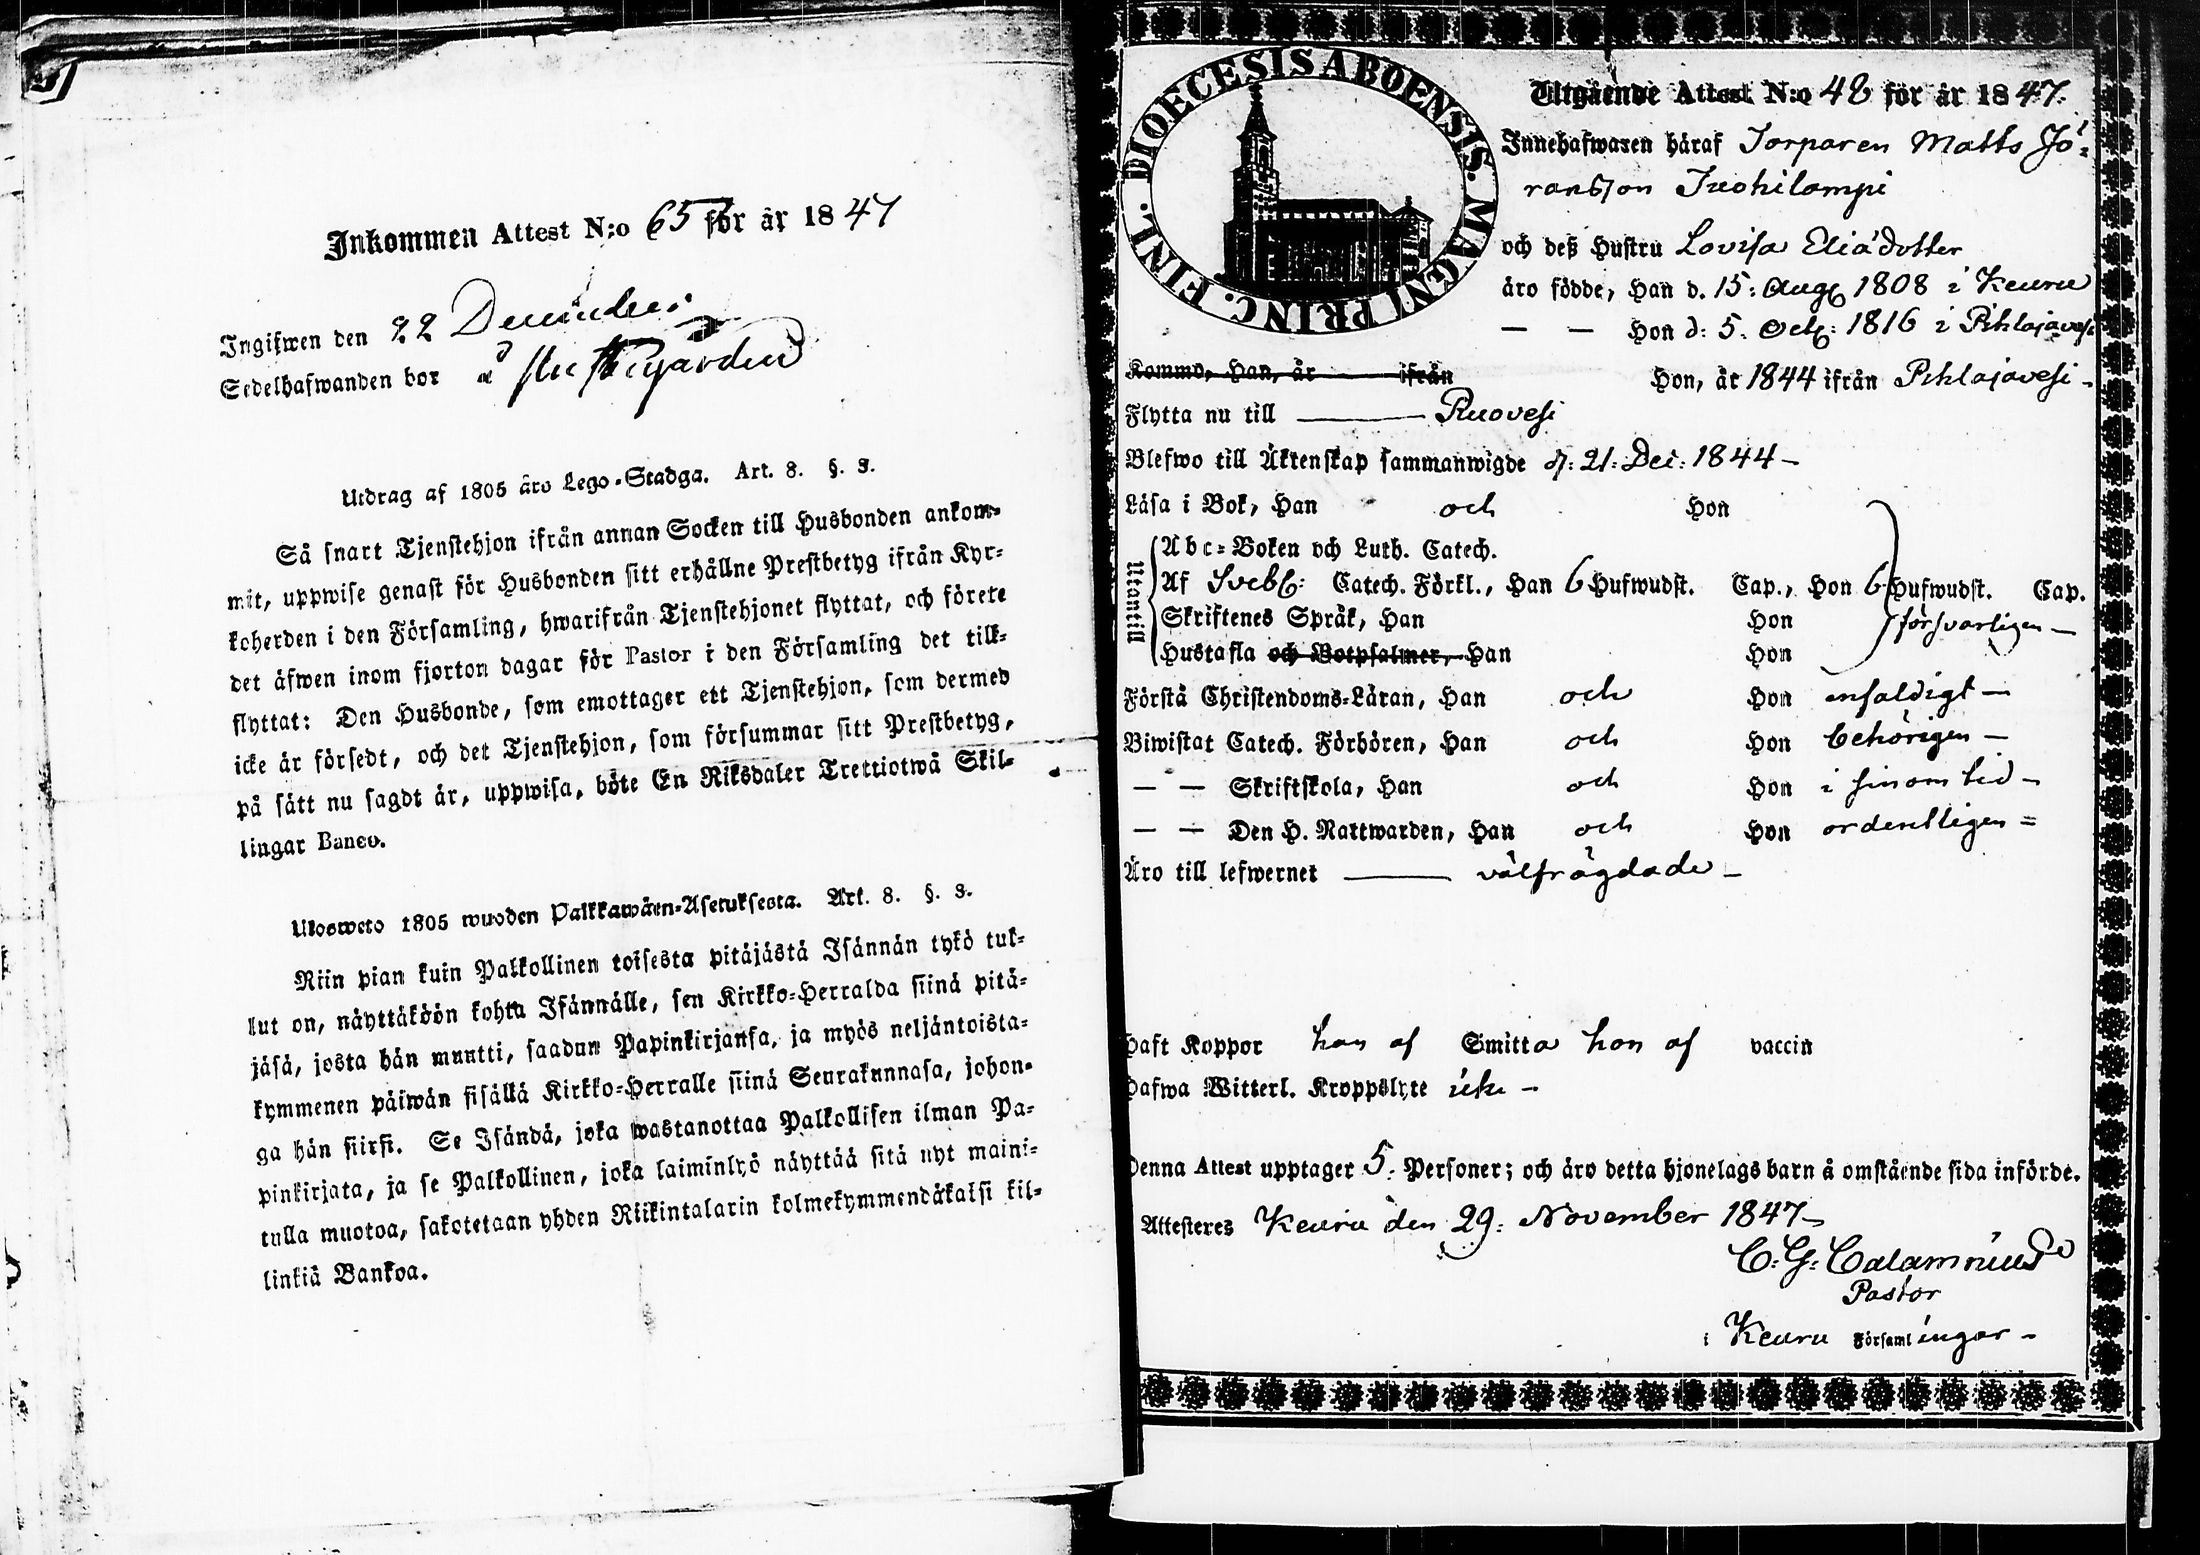 Inkommen Attest N:o 65 för år 1847
Ingifwen den 22 Decembris
Sedelhafwanden bor å
Utdrag af 1805 åro Lego-Stadga. Art. 8. §. 3.
Så snart Tjenstehjon ifrån annan Socken till Husbonden ankom-
mit, uppwise genast för Husbonden sitt erhållne Prestbetyg ifrån Kyr-
koherden i den Församling, hwarifrån Tjenstehjonet flyttat, och förete
det äfwen inom fjorton dagar för Pastor i den Församling det till-
flyttat: Den Husbonde, som emottager ett Tjenstehjon, som dermed
icke är försedt, och det Tjenstehjon, som försummar sitt Prestbetyg,
på sätt nu sagdt är, uppwisa, böte En Riksdaler Trettiotwå Skil-
lingar Banco.
Ulosweto 1805 wuoden Palkkawäen-Asetuksesta. Art. 8. §. 3.
Niin pian kuin Palkollinen toisesta pitäjästä Isännän tykö tul-
lut on, näyttäköön kohta Isännälle, sen Kirkko-Herralda siinä pitä-
jäsä, josta hän muutti, saadun Papinkirjansa, ja myös neljäntoista-
kymmenen päiwän sisällä Kirkko-Herralle siinä Seurakunnasa, johon-
ga hän siirsi. Se Isändä, joka wastanottaa Palkollisen ilman Pa-
pinkirjata, ja se Palkollinen, joka laiminlyö näyttää sitä nyt maini-
tulla muotoa, sakotetaan yhden Riikintalarin kolmekymmendäkaksi kil-
linkiä Bankoa.
DIOECESIS ABOENSIS. MAGNI PRINC. FINL.
Utgående Attest N:o 48 för år 1847.
Innehafwaren häraf Torparen Matts Jö-
ransson Juohilampi
och deß Hustru Lovisa Eliædotter
äro födde, Han d. 15: Aug: 1808 i Keuru
— — Hon d: 5. Oct: 1816 i Pihlajavesi
Kommo, Han, år ifrån Hon, år 1844 ifrån Pihlajavesi -
Flytta nu till Ruovesi
Blefwo till Äktenskap sammanwigde d: 21: Dec: 1844 -
Läsa i Bok, Han och Hon
Utantill
Abc-Boken och Luth. Catech.
Af Svebl: Catech. Förkl., Han 6 Hufwudst. Cap., Hon 6 Hufwudst. Cap.
Skriftenes Språk, Han Hon försvarligen -
Hustafla och Botpsalmer, Han Hon
Förstå Christendoms-Läran, Han och Hon enfaldigt -
Biwistat Catech. Förhören, Han och Hon behörigen -
— — Skriftskola, Han och Hon i sinom tid -
— — Den H. Nattwarden, Han och Hon ordentligen =
Äro till lefwernet välfrägdade -
Haft Koppor han af Smitta hon af vaccin
Hafwa Witterl. Kroppslyte icke -
Denna Attest upptager 5. Personer; och äro detta hjonelags barn å omstående sida införde.
Attesteres Keuru den 29: November 1847 -
C. G. Calamnius
Pastor
i Keuru Församlingar -